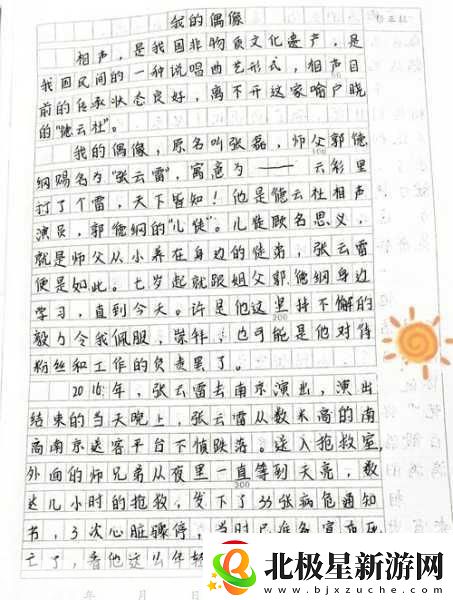 我的偶像
相声，是我国非物质文化遗产，是
我国民间的一种说唱曲艺形式，相声目
前的传承状态良好，离不开这家喻户晓
的“德云社”。
我的偶像，原名叫张磊，师父郭德
纲赐名为“张云雷”，寓意为——云彩里
打了个雷，天下皆知！他是德云社相声
演员，郭德纲的“儿徒”。儿徒顾名思义，
就是师父从小养在身边的徒弟，张云雷
便是如此。七岁起就跟姐父郭德纲身边
学习，直到今天。许是他这坚持不懈的
毅力令我佩服，崇拜，也可能是他对待
粉丝和工作的负责罢了。
2016年，张云雷去南京演出，演出
结束的当天晚上，张云雷从数米高的南
高南京送客平台下愤跌落。送入抢救室，
外面的师兄弟从夜里一直等到天亮，数
达几小时的抢救，发下了33张病危通知
书，3次心脏骤停，当时已准备宣布死
亡了，看他这么年轻
100
200
300
年 月 日
北极星新游网
www.bjxzuche.com